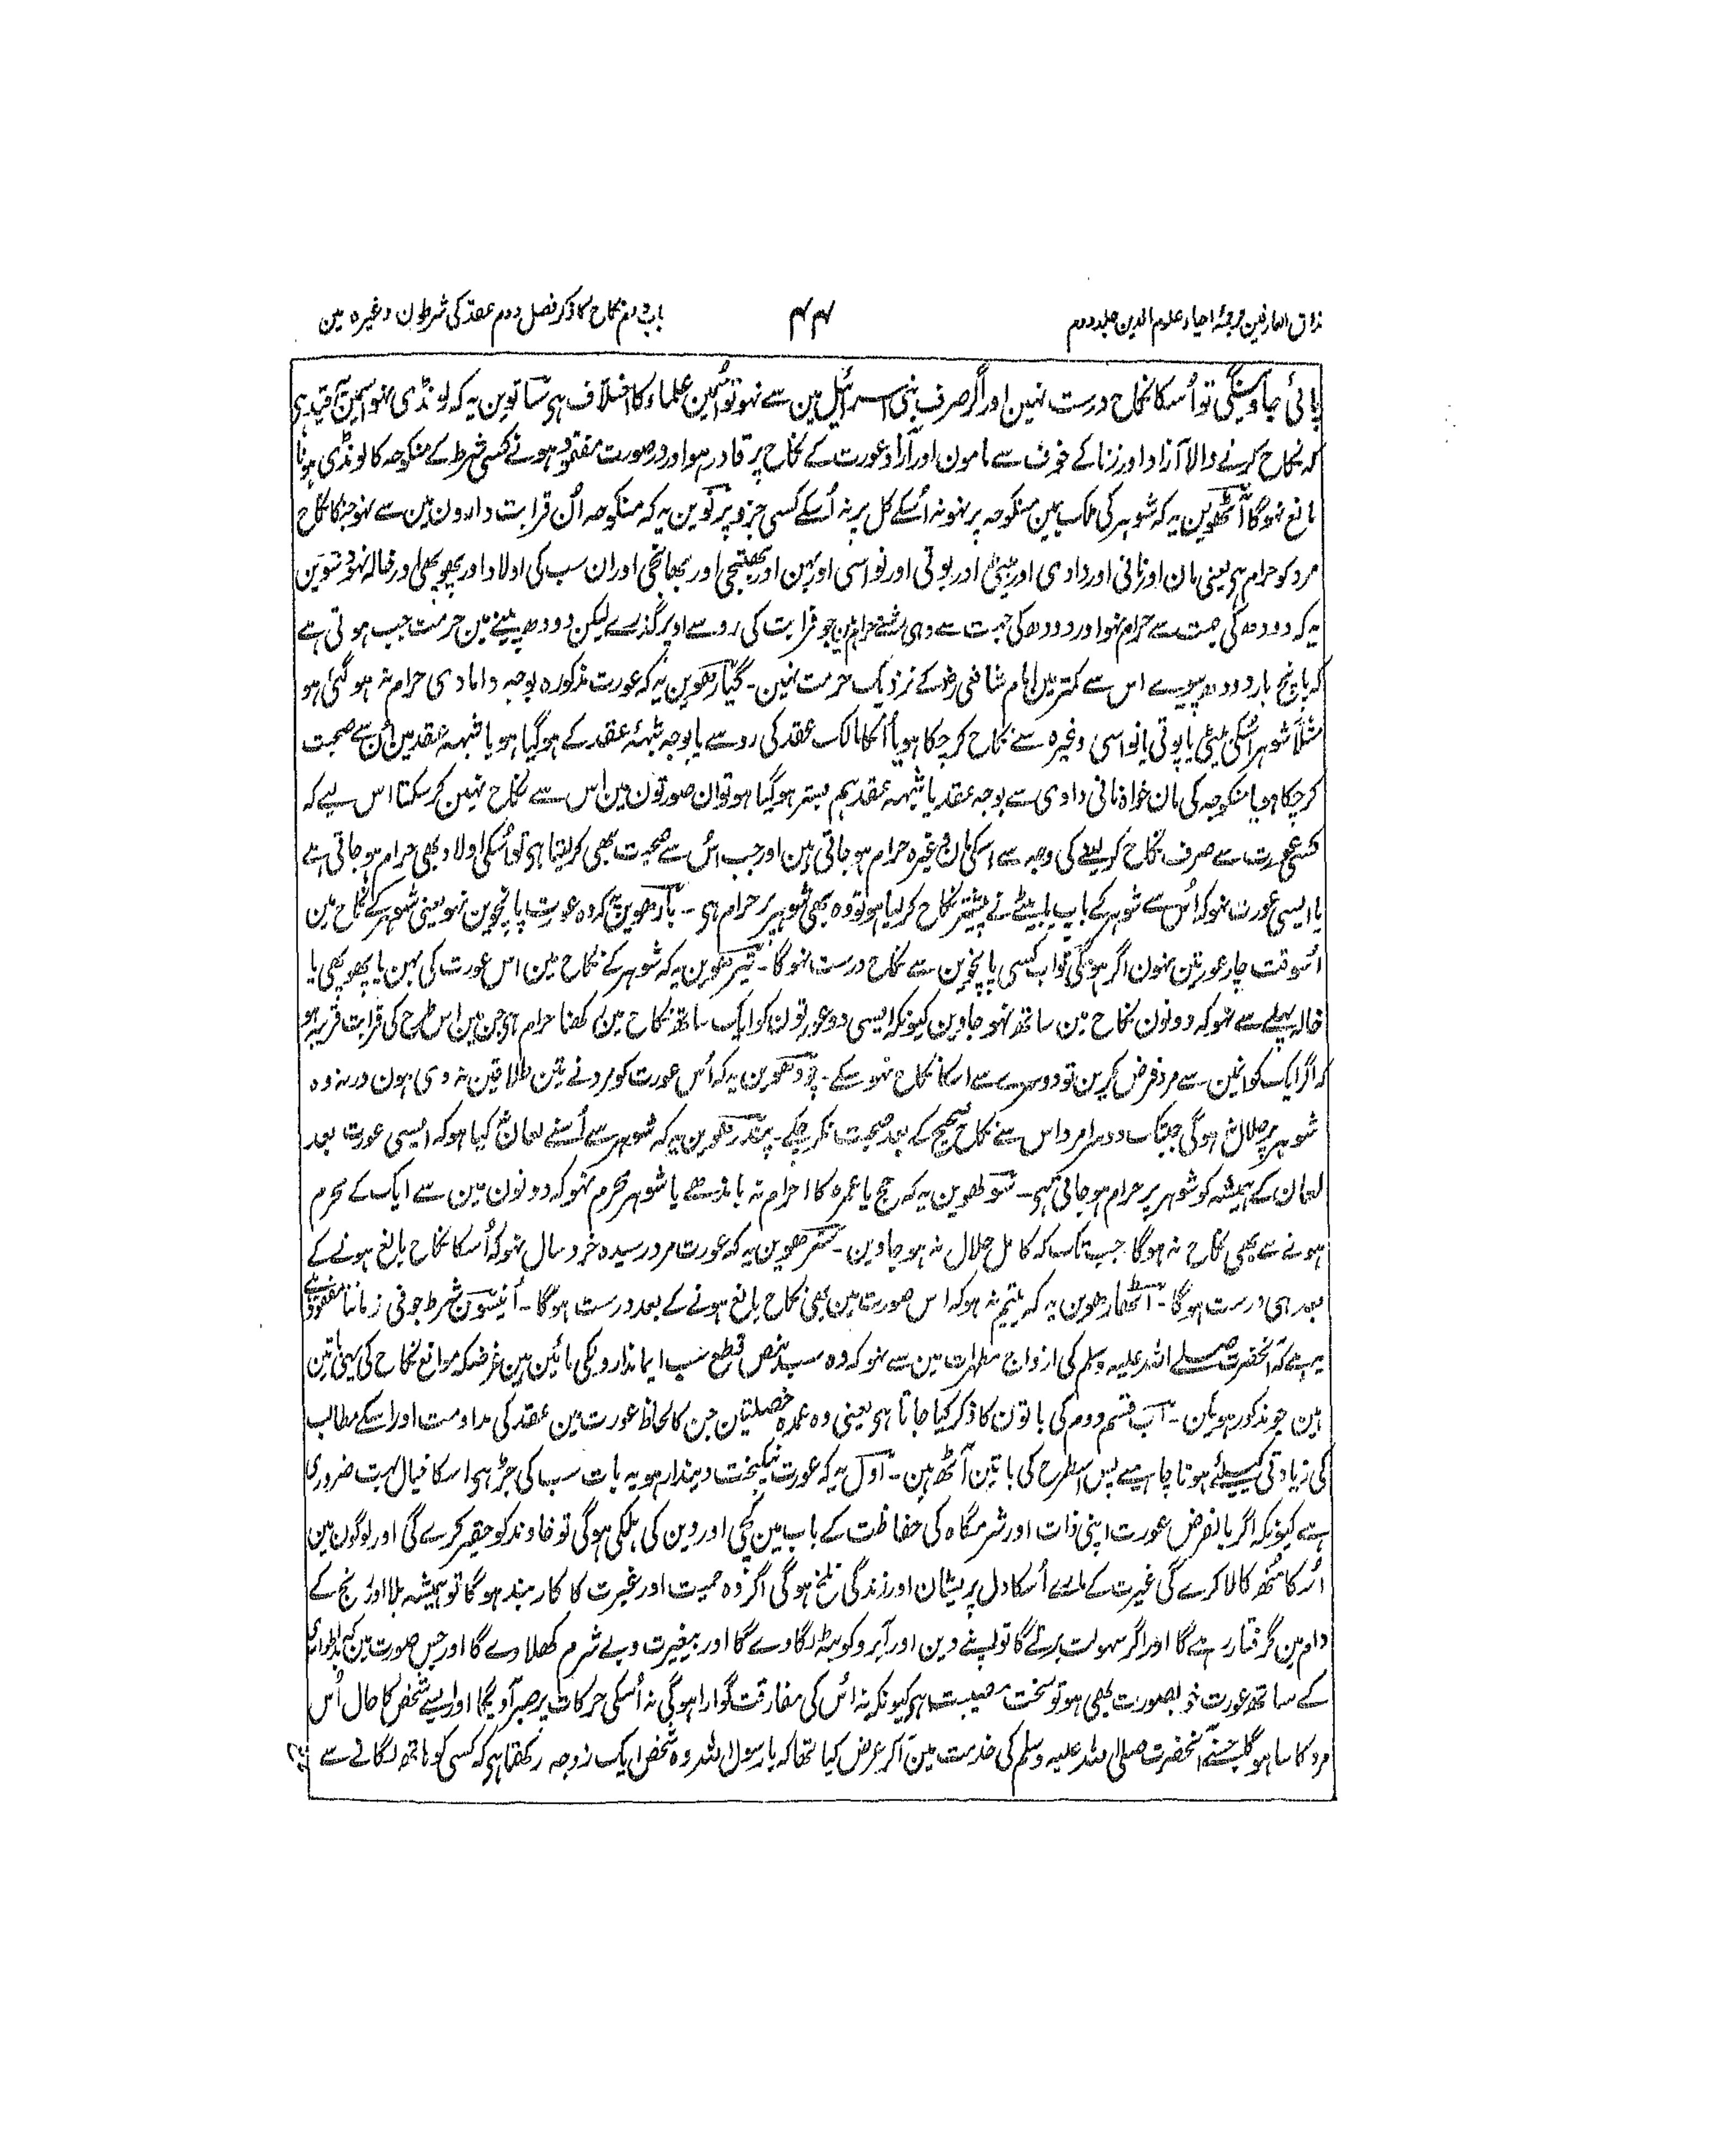 مذاق العارفین ترجمۂ احیاء علوم الدین جلد دوم
۴۴
باب دوم نکاح کا ذکر فصل دوم عقد کی شرطون وغیرہ مین
پائی جاوینگی تو اُسکا نکاح درست نہین اور اگر صرف بنی اسرائیل مین سے نہو تو اُسمین علماء کا اختلاف ہی ساتوین یہ کہ لونڈی نہو اسمین قید ہی
کہ نکاح کرنے والا آزاد اور زنا کے خوف سے مامون اور آزاد عورت کے نکاح پر قادر ہو اور درصورت مفقود ہونے کسی شرط کے منکوحہ کا لونڈی ہونا
مانع نہوگا آٹھوین یہ کہ شوہر کی ملک یمین منکوحہ پر نہو نہ اُسکے کل پر نہ اُسکے کسی جزو پر نوین یہ کہ منکوحہ اُن قرابت دارون مین سے نہو جنکا نکاح
مرد کو حرام ہی یعنی مان اور نانی اور دادی اور بیٹی اور پوتی اور نواسی اور بہن اور بھتیجی اور بھانجی اور ان سب کی اولاد اور پھوپھی اور خالہ نہو دسوین
یہ کہ دودھ کی جہت سے حرام نہو اور دودھ کی جہت سے وہی رشتے حرام ہین جو قرابت کی رو سے اوپر گذرے لیکن دودھ پینے مین حرمت جب ہوتی ہے
کہ پانچ بار دودھ پیوے اس سے کمتر مین امام شافعی رض کے نزدیک حرمت نہین ۔ گیارھوین یہ کہ عورت مذکورہ بوجہ دامادی حرام نہ ہو گئی ہو
مثلاً شوہر اُسکی بیٹی یا پوتی یا نواسی وغیرہ سے نکاح کر چکا ہو یا اُنکا مالک عقد کی رو سے یا بوجہ شبہۂ عقد کے ہو گیا ہو یا شبہہ عقد مین اُن سے صحبت
کر چکا ہو یا منکوحہ کی مان خواہ نانی دادی سے بوجہ عقد یا شبہہ عقد ہم بستر ہو گیا ہو تو ان صورتون مین اس سے نکاح نہین کر سکتا اس لیے کہ
کسی عورت سے صرف نکاح کر لینے کی وجہ سے اسکی مان وغیرہ حرام ہو جاتی ہین اور جب اُس سے صحبت بھی کر لیتا ہی تو اُسکی اولاد بھی حرام ہو جاتی ہے
یا ایسی عورت نہو کہ اُس سے شوہر کے باپ یا بیٹے نے پیشتر نکاح کر لیا ہو تو وہ بھی شوہر پر حرام ہی ۔ بارھوین یہ کہ وہ عورت پانچوین نہو یعنی شوہر کے نکاح مین
اُسوقت چار عورتین نہون اگر ہونگی تو اب کسی پانچوین سے نکاح درست نہوگا ۔ تیرھوین یہ کہ شوہر کے نکاح مین اس عورت کی بہن یا پھوپھی یا
خالہ پہلے سے نہو کہ دونون نکاح مین ساتھ نہو جاوین کیونکہ ایسی دو عورتون کو ایک ساتھ نکاح مین رکھنا حرام ہی جن مین اس طرح کی قرابت قریبہ ہو
کہ اگر ایک کو انمین سے مرد فرض کرین تو دوسرے سے اسکا نکاح نہو سکے ۔ چودھوین یہ کہ اُس عورت کو مرد نے تین طلاقین نہ دی ہون ورنہ وہ
شوہر پر حلال نہوگی جبتک دوسرا مرد اس سے نکاح صحیح کے بعد صحبت نکر چکے ۔ پندرھوین یہ کہ شوہر سے اُسنے لعان نہ کیا ہو کہ ایسی عورت بعد
لعان کے ہمیشہ کو شوہر پر حرام ہو جاتی ہی ۔ سولھوین یہ کہ حج یا عمرہ کا احرام نہ باندھے یا شوہر محرم نہو کہ دونون مین سے ایک کے محرم
ہونے سے بھی نکاح نہ ہوگا جب تک کہ کامل حلال نہ ہو جاوین ۔ سترھوین یہ کہ عورت مرد رسیدہ خرد سال نہو کہ اُسکا نکاح بالغ ہونے کے
بعد ہی درست ہوگا ۔ اٹھارھوین یہ کہ یتیم نہ ہو کہ اس صورت مین بھی نکاح بالغ ہونے کے بعد درست ہوگا ۔ اُنیسوین شرط جو فی زماننا مفقود ہے
یہ ہے کہ آنحضرت صلے اللہ علیہ وسلم کی ازواج مطہرات مین سے نہو کہ وہ سب بنص قطع سب ایماندارونکی مائین ہین غرضکہ موانع نکاح کی یہی باتین
ہین جو مذکور ہوئین ۔ اب قسم دوم کی باتون کا ذکر کیا جاتا ہی یعنی وہ عمدہ خصلتین جن کا لحاظ عورت مین عقد کی مداومت اور اسکے مطالب
کی زیادتی کیلیے ہونا چاہیے پس اسطرح کی باتین آٹھ ہین ۔ اول یہ کہ عورت نیکبخت دیندار ہو یہ بات سب کی جڑ ہی اسکا خیال بہت ضروری
ہے کیونکہ اگر بالفرض عورت اپنی ذات اور شرمگاہ کی حفاظت کے باب مین کچی اور دین کی ہلکی ہوگی تو خاوند کو حقیر کرے گی اور لوگون مین
اُسکا مُنھ کالا کرے گی غیرت کے مارے اُسکا دل پریشان اور زندگی تلخ ہوگی اگر وہ حمیت اور غیرت کا کاربند ہوگا تو ہمیشہ بلا اور رنج کے
دام مین گرفتار رہے گا اور اگر سہولت برتے گا تو اپنے دین اور آبرو کو بٹہ لگاوے گا اور بیغیرت و بے شرم کھلاوے گا اور جس صورت مین کہ بد اطواری
کے ساتھ عورت خوبصورت بھی ہو تو سخت مصیبت ہی کیونکہ نہ اُس کی مفارقت گوارا ہوگی نہ اُسکی حرکات پر صبر آویگا اور ایسے شخص کا حال اُس
مرد کا سا ہوگا جسنے آنحضرت صلی اللہ علیہ وسلم کی خدمت مین آکر عرض کیا تھا کہ یا رسول اللہ وہ شخص ایک زوجہ رکھتا ہی کہ کسی کو ہاتھ لگانے سے